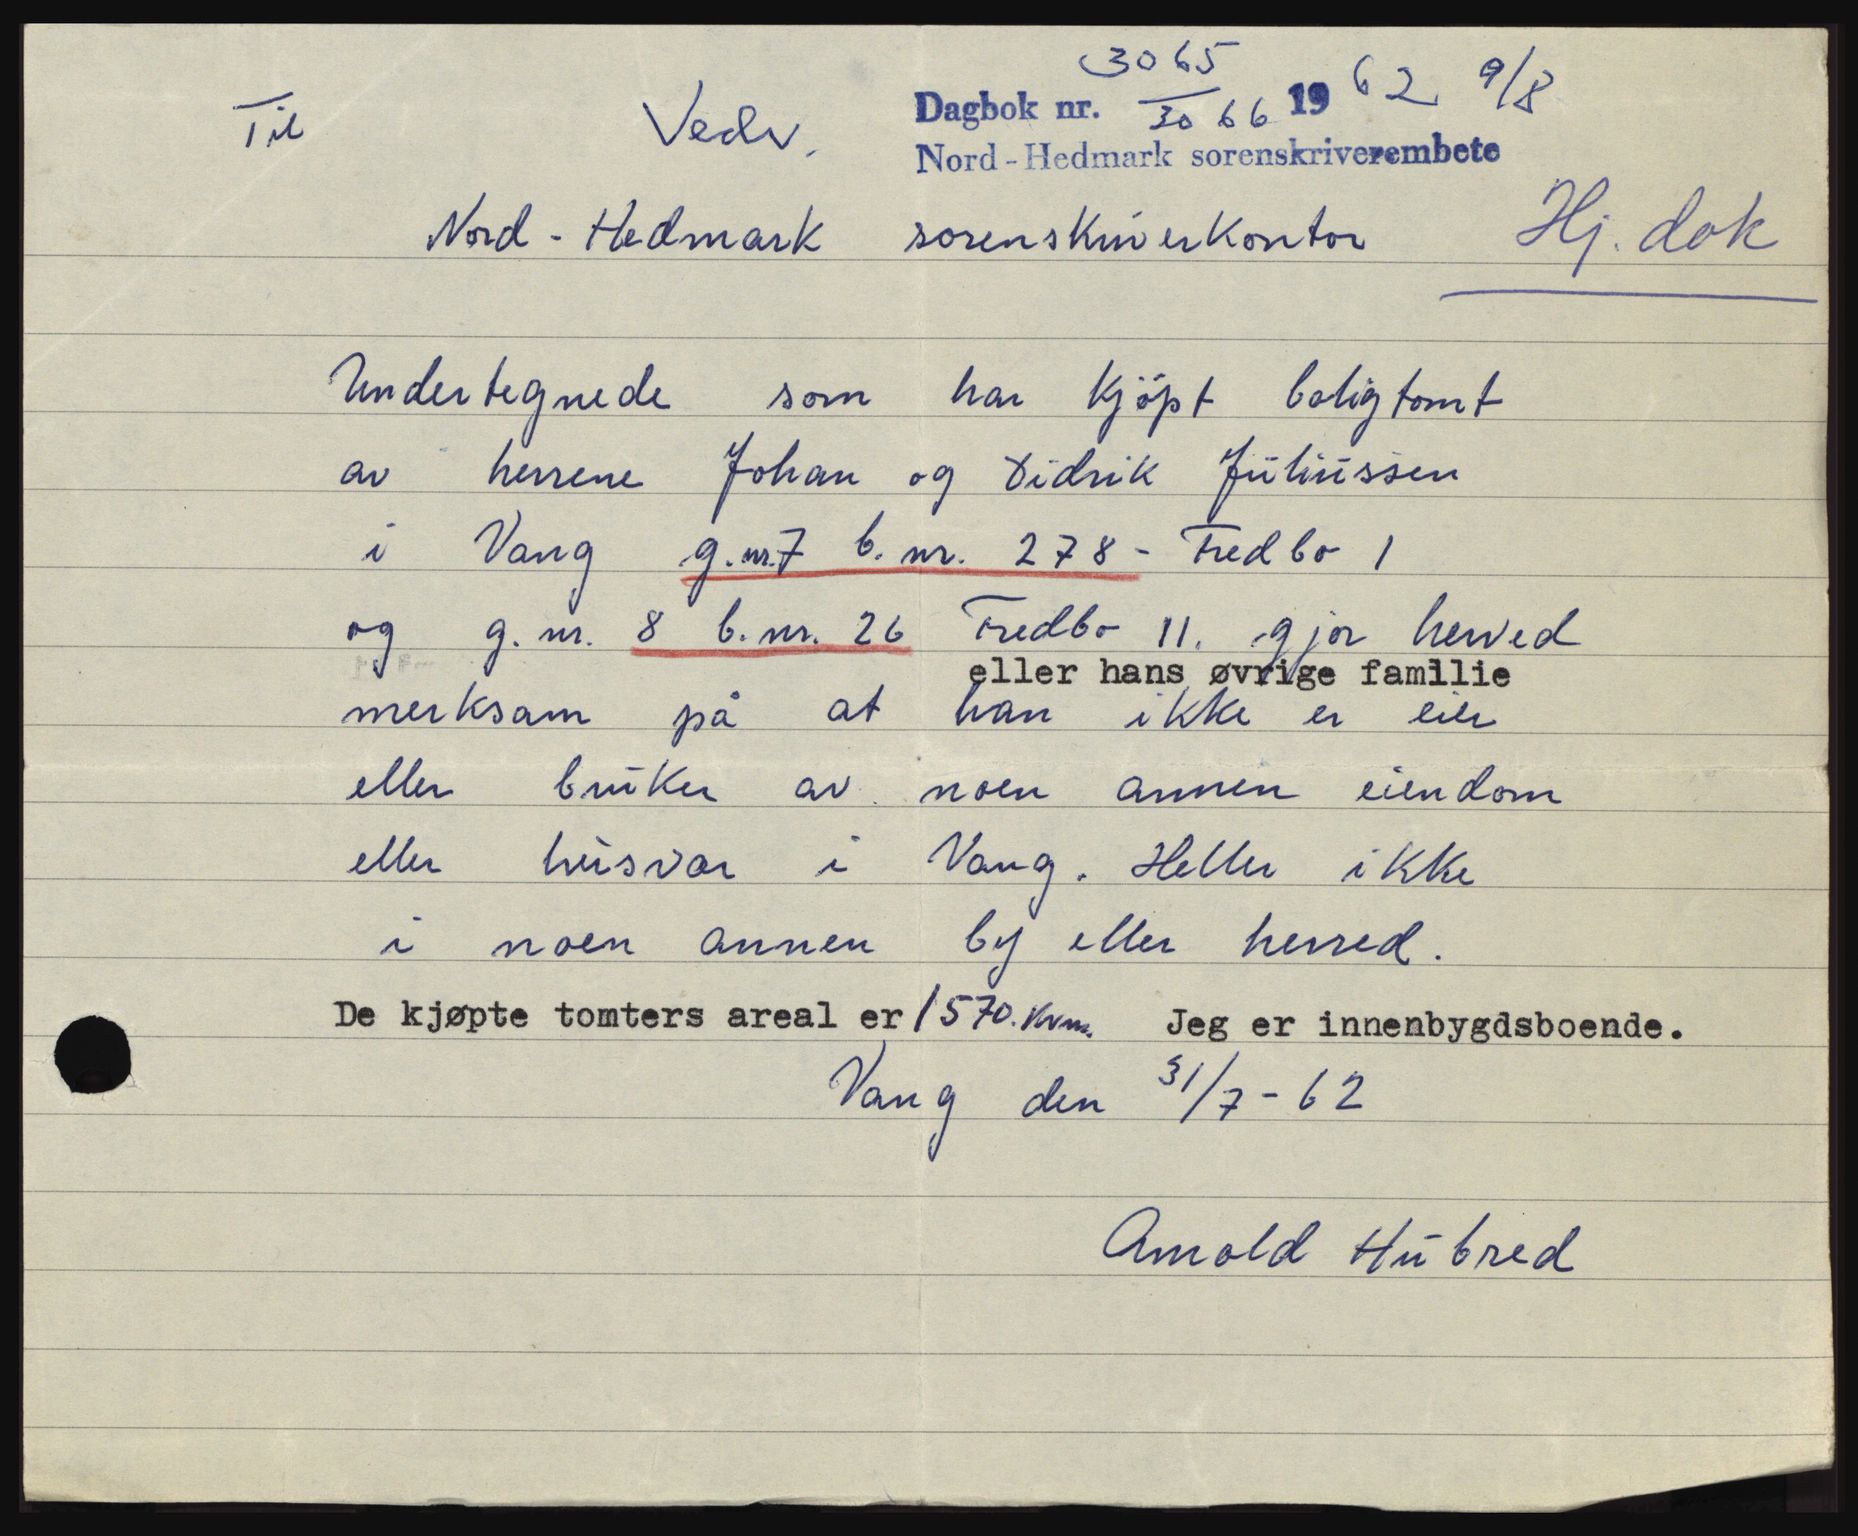 3065
Til Vedv. Dagbok nr. 3066 1962 9/8
Nord-Hedmark sorenskriverembete
Nord - Hedmark sorenskriverkontor Hj. dok
Undertegnede som har kjöpt boligtomt
av herrene Johan og Didrik Juliussen
i Vang g.nr.7 b.nr. 278 - Fredbo 1
og g.nr. 8 b.nr. 26 Fredbo 11. gjör herved
eller hans øvrige familie
merksam på at han ikke er eier
eller bruker av noen annen eiendom
eller husvær i Vang. Heller ikke
i noen annen by eller herred.
De kjøpte tomters areal er 1570.Kvm. Jeg er innenbygdsboende.
Vang den 31/7-62
Arnold Hubred